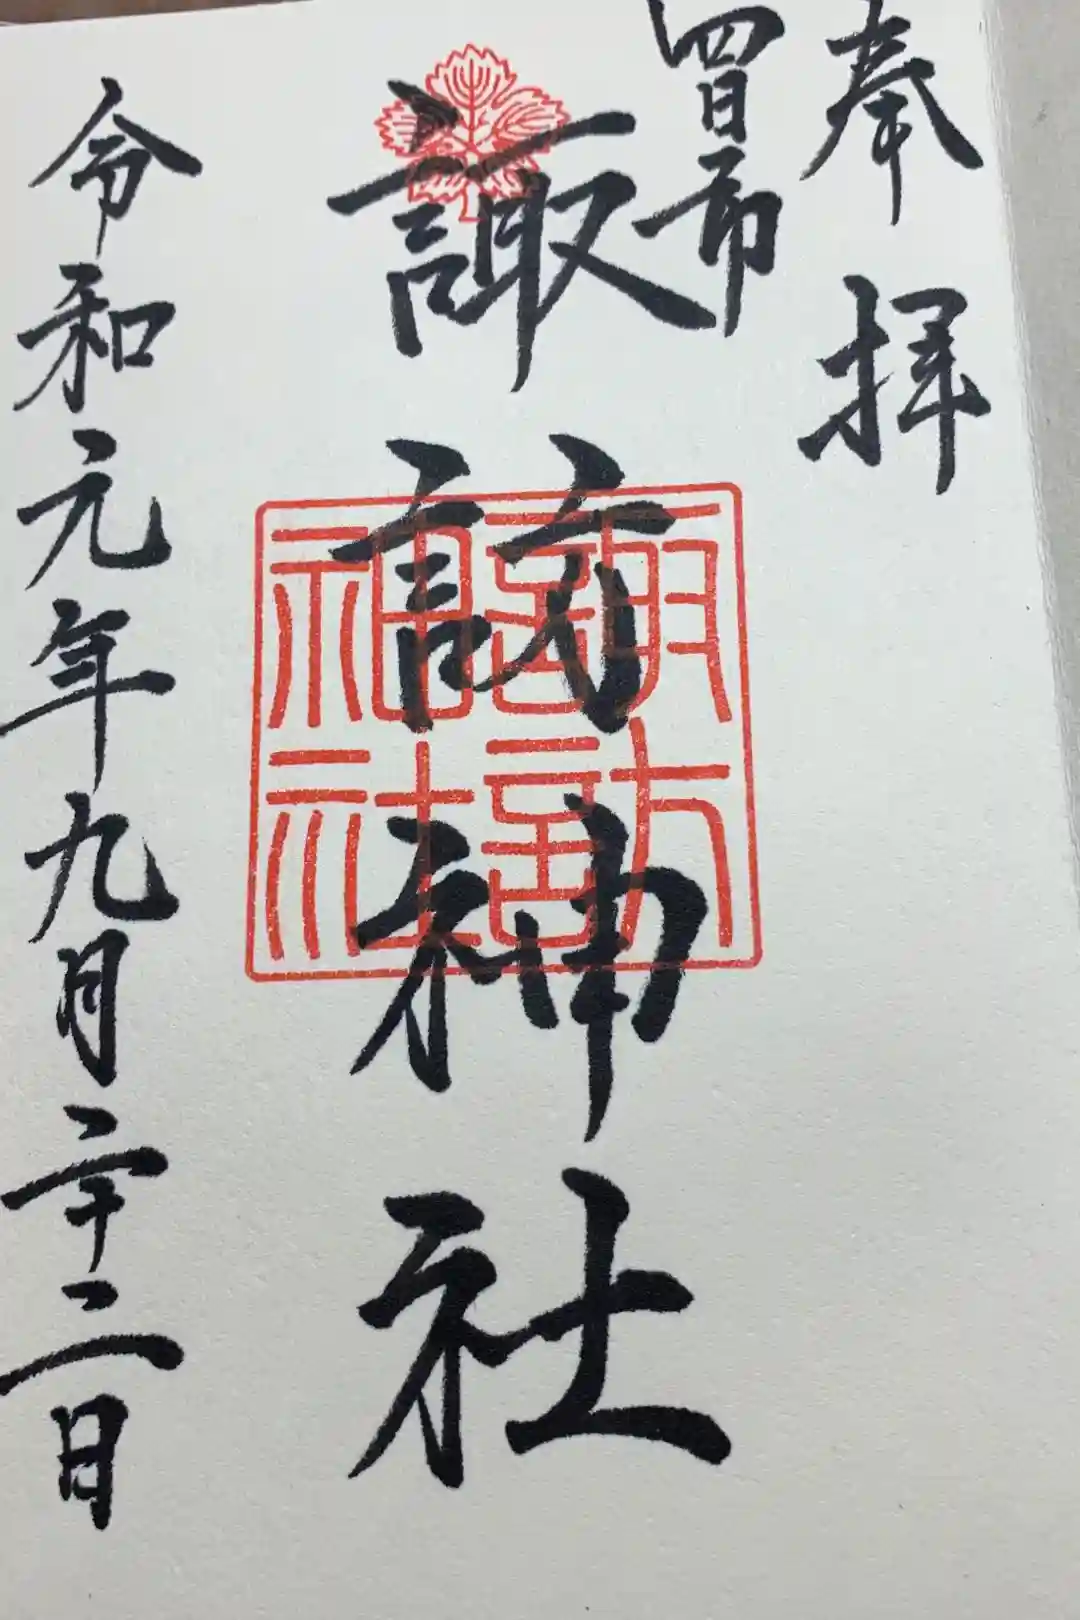 奉拝
四日市
諏訪神社
諏訪
神社
令和元年九月二十二日